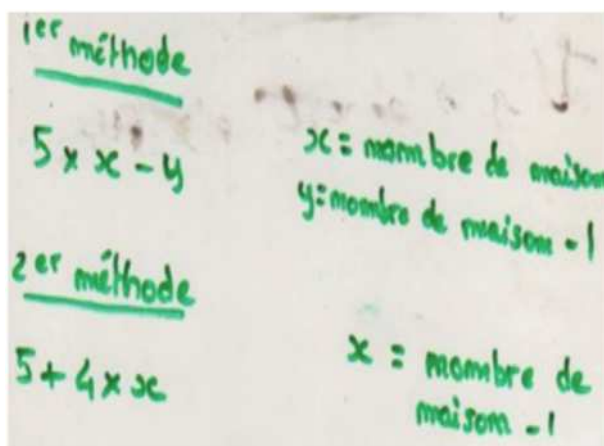 1er méthode
5 × x - y
x = nombre de maison
y = nombre de maison - 1
2er méthode
5 + 4 × x
x = nombre de
maison - 1